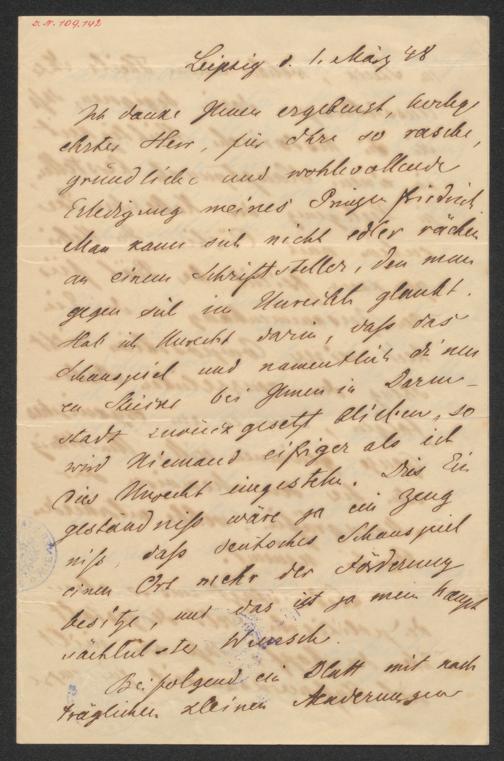 I.N. 109.142
Leipzig d. 1. März 48
Ich danke Ihnen ergebenst, verehr
ehrter Herr, für Ihre so rasche,
gründliche und wohlwollende
Erledigung meines Prinzen Friedrich
Man kann sich nicht edler rächen
an einem Schriftsteller, den man
gegen sich in Unrecht glaubt.
Hab ich Unrecht darin, daß das
Schauspiel und namentlich
bei Ihnen in Darm-
stadt zurückgesetzt blieben, so
wird Niemand eifriger als ich
dies Unrecht eingestehn. Dies Ein
geständniß wäre ja ein Zeug
niß, daß deutsches Schauspiel
einen Ort mehr der Förderung
besitze, und das ist ja mein haupt
sächlichster Wunsch.
Beifolgend ein Blatt mit nach
träglichen kleinen Aenderungen